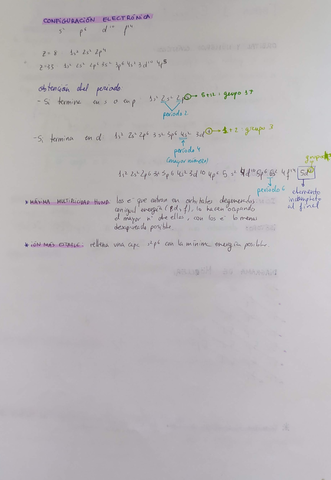 CONFIGURACIÓN ELECTRÓNICA:
s² p⁶ d¹⁰ f¹⁴
Z=8 1s² 2s² 2p⁴
Z=35 1s² 2s² 2p⁶ 3s² 3p⁶ 4s² 3d¹⁰ 4p⁵
obtención del periodo
- Si termina en s o en p. 1s² 2s² 2p⁵ → 5+12: grupo 17
periodo 2
- Si termina en d. 1s² 2s² 2p⁶ 3s² 3p⁶ 4s² 3d → +2: grupo
periodo 4
(mayor número)
1s² 2s² 2p⁶ 3s² 3p⁶ 4s² 3d¹⁰ 4p⁶ 5s² 4d¹⁰ 5p⁶ 6s² 4f¹⁴ 5d
grupo
periodo 6
elemento
al final
MÁXIMA MULTIPLICIDAD HUND: los e⁻ que entran en orbitales degenerados
con igual energía (p, d, f), lo hacen ocupando
el mayor nº de ellos, con los e⁻ lo menos
desapareado posible.
IÓN MÁS ESTABLE: rellena una capa s²p⁶ con la mínima energía posible.